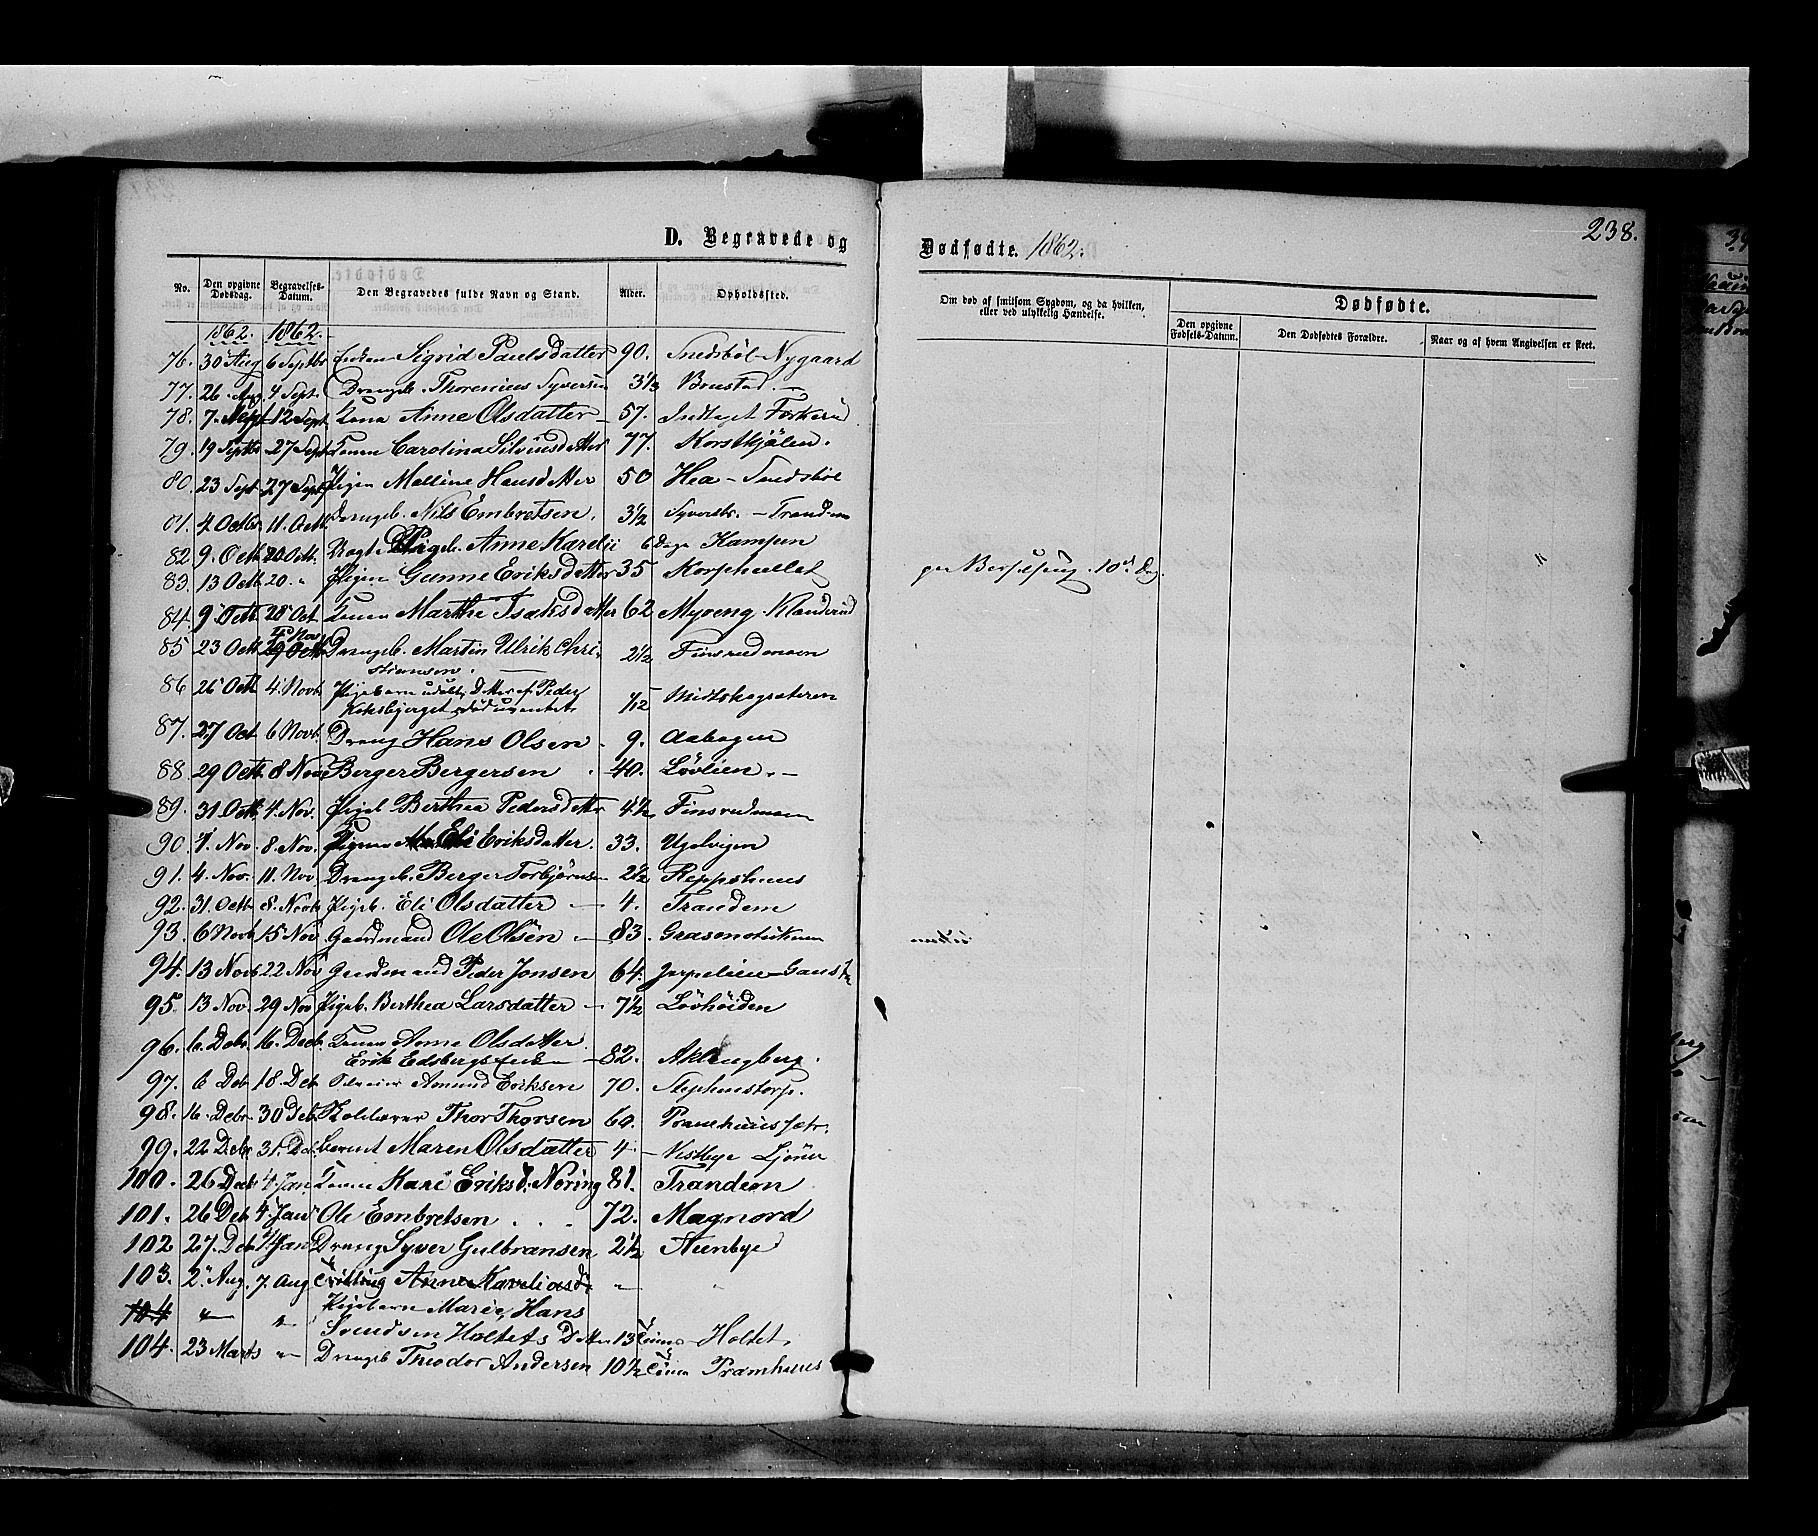 238.
D. Begravede og Dødfødte. 1862.
No. Den opgivne Dødsdag. Begravelses-Datum. Den Begravedes fulde Navn og Stand. Alder. Opholdssted.
Om død af smitsom Sygdom, og da hvilken, eller ved ulykkelig Hændelse.
Dødfødte.
Den opgivne Fødsels-Datum. Den Dødfødtes Forældre. Naar og af hvem Angivelsen er skeet.
1862. 1862.
76. 30 Aug 6 Septbr Enken Sigrid Paulsdatter 90. Snedsböl Nygaard
77. 26 Aug 4 Sept. Drengeb. Thorenius Syversen 3 1/3 Brustad. -
78. 7. Sept 12 Sept Kona Anne Olsdatter - 57.
79. 19 Septbr 27 Sept Konen Carolina Silviusdatter 77. Korstkjölen.
80. 23 Sept 27 Sept Pigen Malline Hansdatter 50 Hea - Snedsböl
81. 4 Octbr 11. Octb Drengeb. Nils Embretsen. 3 1/2 - Trandem
82. 9. Octb 20 Octb. Pigeb. Anne Karelii 6 Dage Kampen
83. 13 Octb 20. " Pigen Gunne Eriksdatter 35 per Barselseng. 10de Dag.
84. 9 Octb 28 Oct Konen Marthe Isaksdatter 62 Myreng Klanderud
85 23 Octb 29 Octb Drengeb. Martin Ulrik Chri-
stiansen. 2 1/2 Finsrudmoen
86 26 Octb 4. Novb. Pigebarn udøbt, Datter af Peder
Koksbjerget 1/12 Midtskogsæteren
87. 27 Oct 6 Novb. Dreng Hans Olsen 9. Aabogen
88. 29 Octb. 8 Nov Berger Bergersen 40. Lövlien. -
89. 31. Octb 4. Nov. Pigeb Berthea Pedersdatter 4 1/2 Finsrudmoen
90. 1. Nov. 8 Nov. Pigen Eli Eriksdatter. 33. Ugelvigen
91. 4. Nov. 11. Nov. Drengeb. Berger Torbjörns 2 1/2 Reppshuus
92. 31. Octb 8. Novb Pigeb. Eli Olsdatter - 4. Trandem
93. 6 Novb 15 Nov Gaardmand Ole Olsen - 83.
94. 13 Novb 22 Nov Peder Jonsen 64.
95. 13 Nov. 29 Nov Pigeb. Berthea Larsdatter - 7 1/2 Lövhöiden
96. 6. Debr. 16. Decb. Konen Anne Olsdatter
Erik Edsbergs Enke - 82. Aklangberg.
97. 6 Deb 18. Deb Amund Eriksen 70. Stephenstorp.
98. 16. Debr. 30 Deb. Thor Thorsen 60.
99. 22 Debr 31. Deb. Maren Olsdatter 4. - Vestbye
100. 26 Decb 4. Jan. Konen Kari Eriksd. Noring 81. Trandem
101. 26 Deb 4. Jan Ole Embretsen . . . 72. Magnord
102 27. Deb Jan Dreng Syver Gulbransen 2 1/2 Nennbye
103. 2. Aug. 7. Aug Tvilling Anne Karelia " "
104 " " Pigebarn Marie, Hans
Svendsen Holtets Datter 13 Holtet
104. 23 Marts " Drengeb Theodor Andersen 10 1/2 Pramhuus